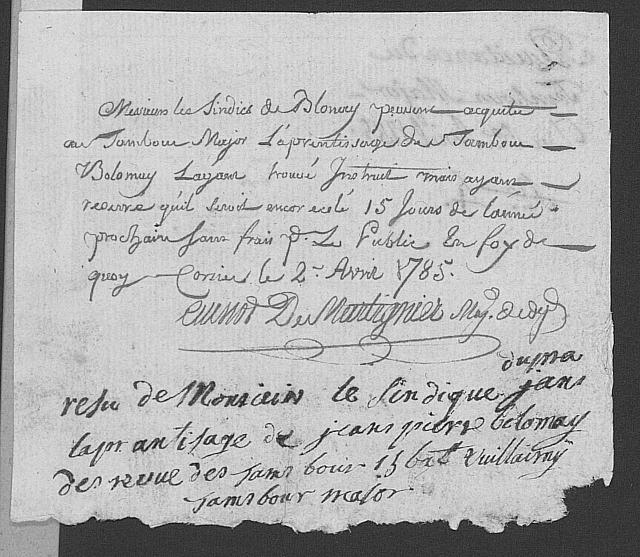 Messieurs les Sindics de Blonay peuvent acquiter
au Tambour Major L'aprentissage du Tambour
Bolomay Layant trouvé Instruit mais ayant
reservé quil seroit encor ecolé 15 Jours de lanné
prochain sans frais p.r Le Public En foy de
quoy Corsier le 2.e Avril 1785.
Cuenod De Martignier Maj.
resu de Monsieur le sindique
laprantisage de jeans pierre bolomay
des revue des tams bour 15 Vuillaimÿ
tams bour major